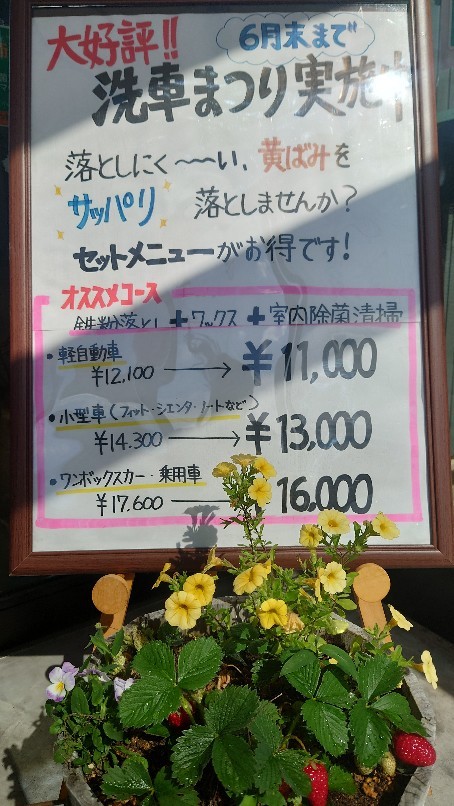 大好評!!
6月末まで
洗車まつり実施中
落としにく〜い、黄ばみを
サッパリ 落としませんか?
セットメニューがお得です!
オススメコース
鉄粉落とし+ワックス+室内除菌清掃
・軽自動車
¥12,100 → ¥11,000
・小型車(フィット・シエンタ・ノートなど)
¥14.300 → ¥13,000
・ワンボックスカー・乗用車
¥17.600 16,000